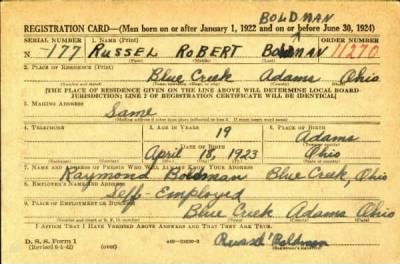 BOLDMAN
REGISTRATION CARD—(Men born on or after January 1, 1922 and on or before June 30, 1924)
SERIAL NUMBER 1. NAME (Print) ORDER NUMBER
N 177 RUSSEL ROBERT BOLDMAN 11270
(First) (Middle) (Last)
2. PLACE OF RESIDENCE (Print)
Blue Creek Adams Ohio
[THE PLACE OF RESIDENCE GIVEN ON THE LINE ABOVE WILL DETERMINE LOCAL BOARD
JURISDICTION; LINE 2 OF REGISTRATION CERTIFICATE WILL BE IDENTICAL]
3. MAILING ADDRESS
Same
4. TELEPHONE 5. AGE IN YEARS 6. PLACE OF BIRTH
19 Adams
DATE OF BIRTH
April 1923 Ohio
7. NAME AND ADDRESS OF PERSON WHO WILL ALWAYS KNOW YOUR ADDRESS
Raymond Boldman Blue Creek, Ohio
8. EMPLOYER'S NAME AND ADDRESS
Self-Employed
9. PLACE OF EMPLOYMENT OR BUSINESS
Blue Creek Adams Ohio
I AFFIRM THAT I HAVE VERIFIED ABOVE ANSWERS AND THAT THEY ARE TRUE.
D. S. S. Form 1
(Revised 6-1-42) (over)
Boldman